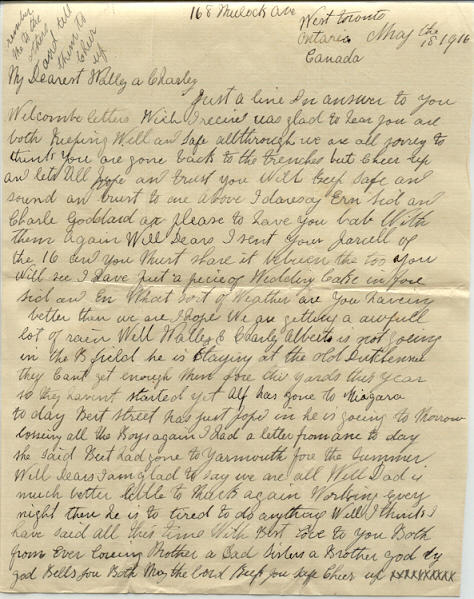 remember
me to the
others
and tell
them to
Cheer
up
168 Mulock Ave
West Toronto
Ontario May the 18 1916
Canada
My Dearest Walley a Charley
Just a line In answer to you
Welcombe letters Wich I receive was glad to hear you are
both Keeping Well an Safe allthrough we are all sorrey to
think You are gone back to the trenches but Cheer up
an lets all hope an trust you Will Keep Safe an
sound an trust to one above I daresay Ern Sid an
Charle Goddard are please to have you back With
them again Will Dears I sent you parcell of
the 16 an you Must share it between the too you
Will see I have put a piece of Wedding Cake in fore
Sid an Ern What Sort of Weather are You having
better then we are I hope We are getting a awfull
lot of rain Well Walley & Charly Albert is not going
in the B field he is Staying at the old
they Cant get enough Men fore the yards this Year
so they havent started yet Alf has gone to Niagara
to day Bert Street has just pope in he is going to Morrow
lossing all the Boys again I had a letter from to day
she Said Bert had gone to Yarmouth fore the Summer
Will Dears I am glad to say we are all Well Dad is
much better able to again Working Every
night then he is to tired to do anything Will I think I
have said all this time With Best Love to You Both
from Ever Loving Mother a Dad Sisters a Brother god by
god Bless you Both May the lord Keep you safe Cheer up xxxxxxxxxx